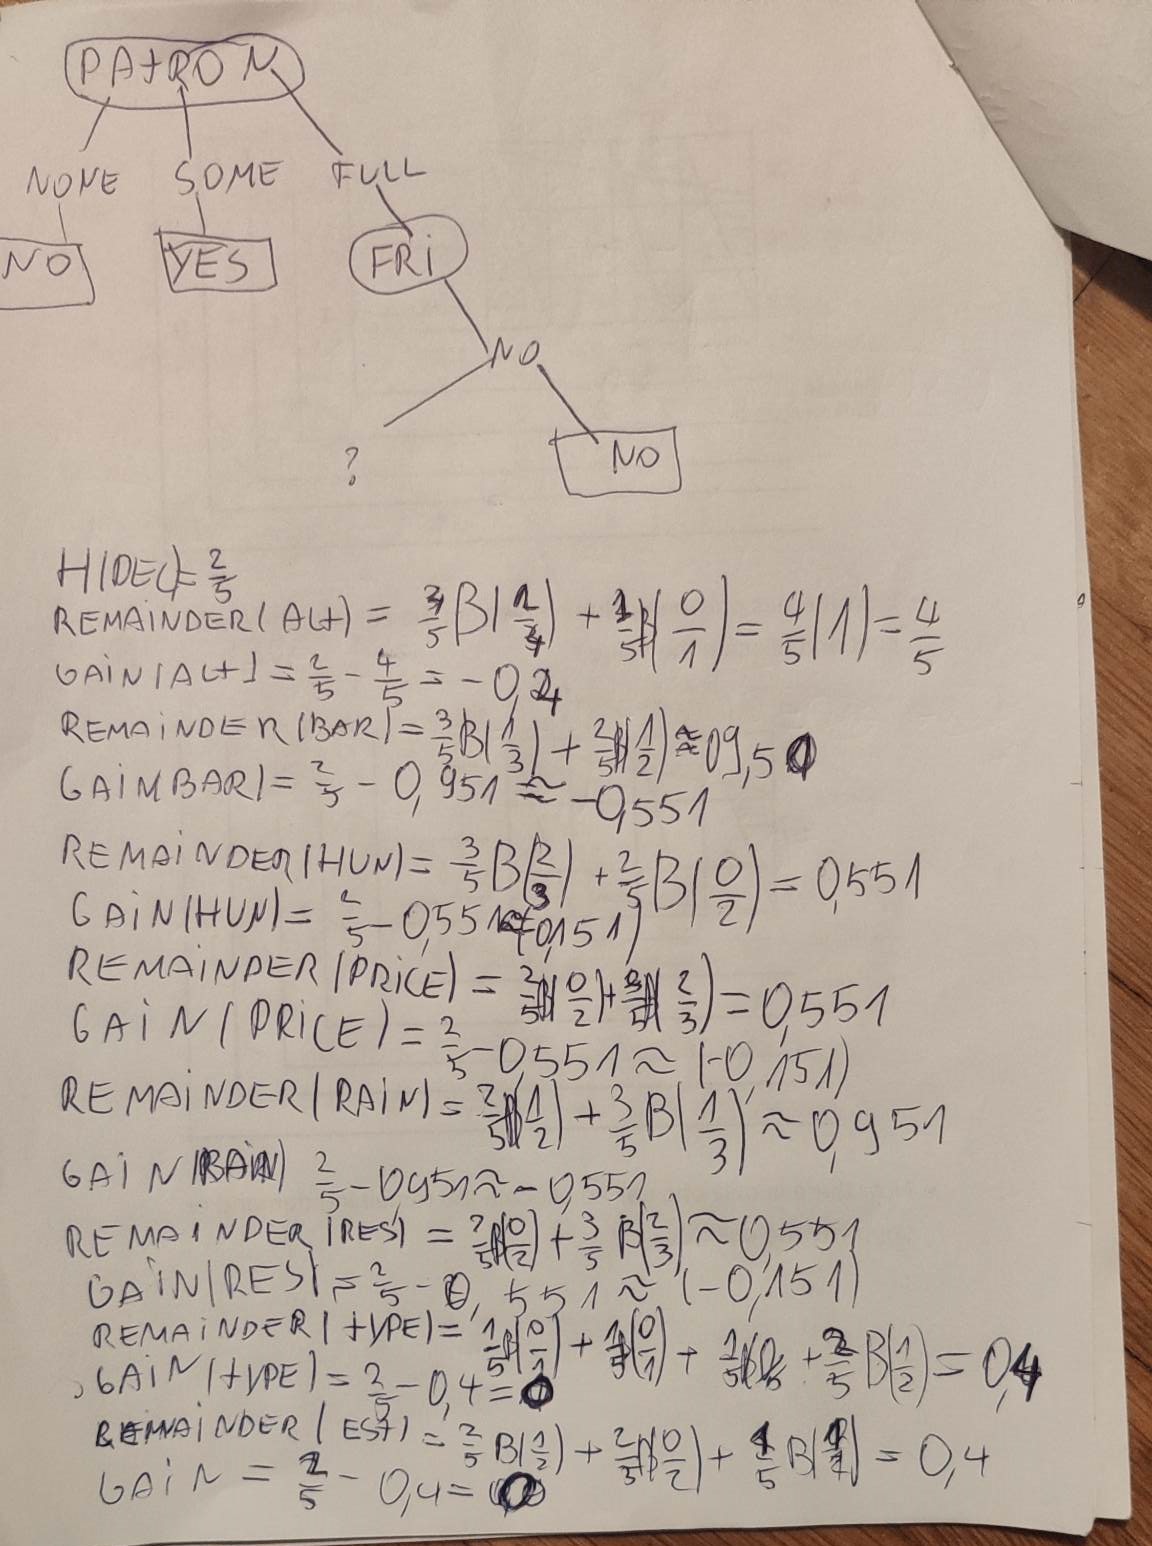 PATRON
NONE SOME FULL
NO YES FRI
NO
? NO
H(DEC)= 2/5
REMAINDER(ALT) = 4/5 B(2/4) + 1/5 B(0/1) = 4/5(1) = 4/5
GAIN(ALT) = 2/5 - 4/5 = -0,4
REMAINDER(BAR) = 3/5 B(1/3) + 2/5 B(1/2) ≈ 09,5
GAIN(BAR) = 2/5 - 0,951 ≈ -0,551
REMAINDER(HUN) = 3/5 B(2/3) + 2/5 B(0/2) = 0,551
GAIN(HUN) = 2/5 - 0,551 (-0,151)
REMAINDER(PRICE) = 2/5 B(0/2) + 3/5 B(2/3) = 0,551
GAIN(PRICE) = 2/5 - 0,551 ≈ (-0,151)
REMAINDER(RAIN) = 2/5 B(1/2) + 3/5 B(1/3) ≈ 0,951
GAIN(RAIN) 2/5 - 0,951 ≈ -0,551
REMAINDER(RES) = 2/5 B(0/2) + 3/5 B(2/3) ≈ 0,551
GAIN(RES) = 2/5 - 0,551 ≈ (-0,151)
REMAINDER(TYPE) = 1/5 B(0/1) + 1/5 B(0/1) + 1/5 + 2/5 B(1/2) = 0,4
GAIN(TYPE) = 2/5 - 0,4 = 0
REMAINDER(EST) = 2/5 B(1/2) + 2/5 B(0/2) + 1/5 B = 0,4
GAIN = 2/5 - 0,4 = 0